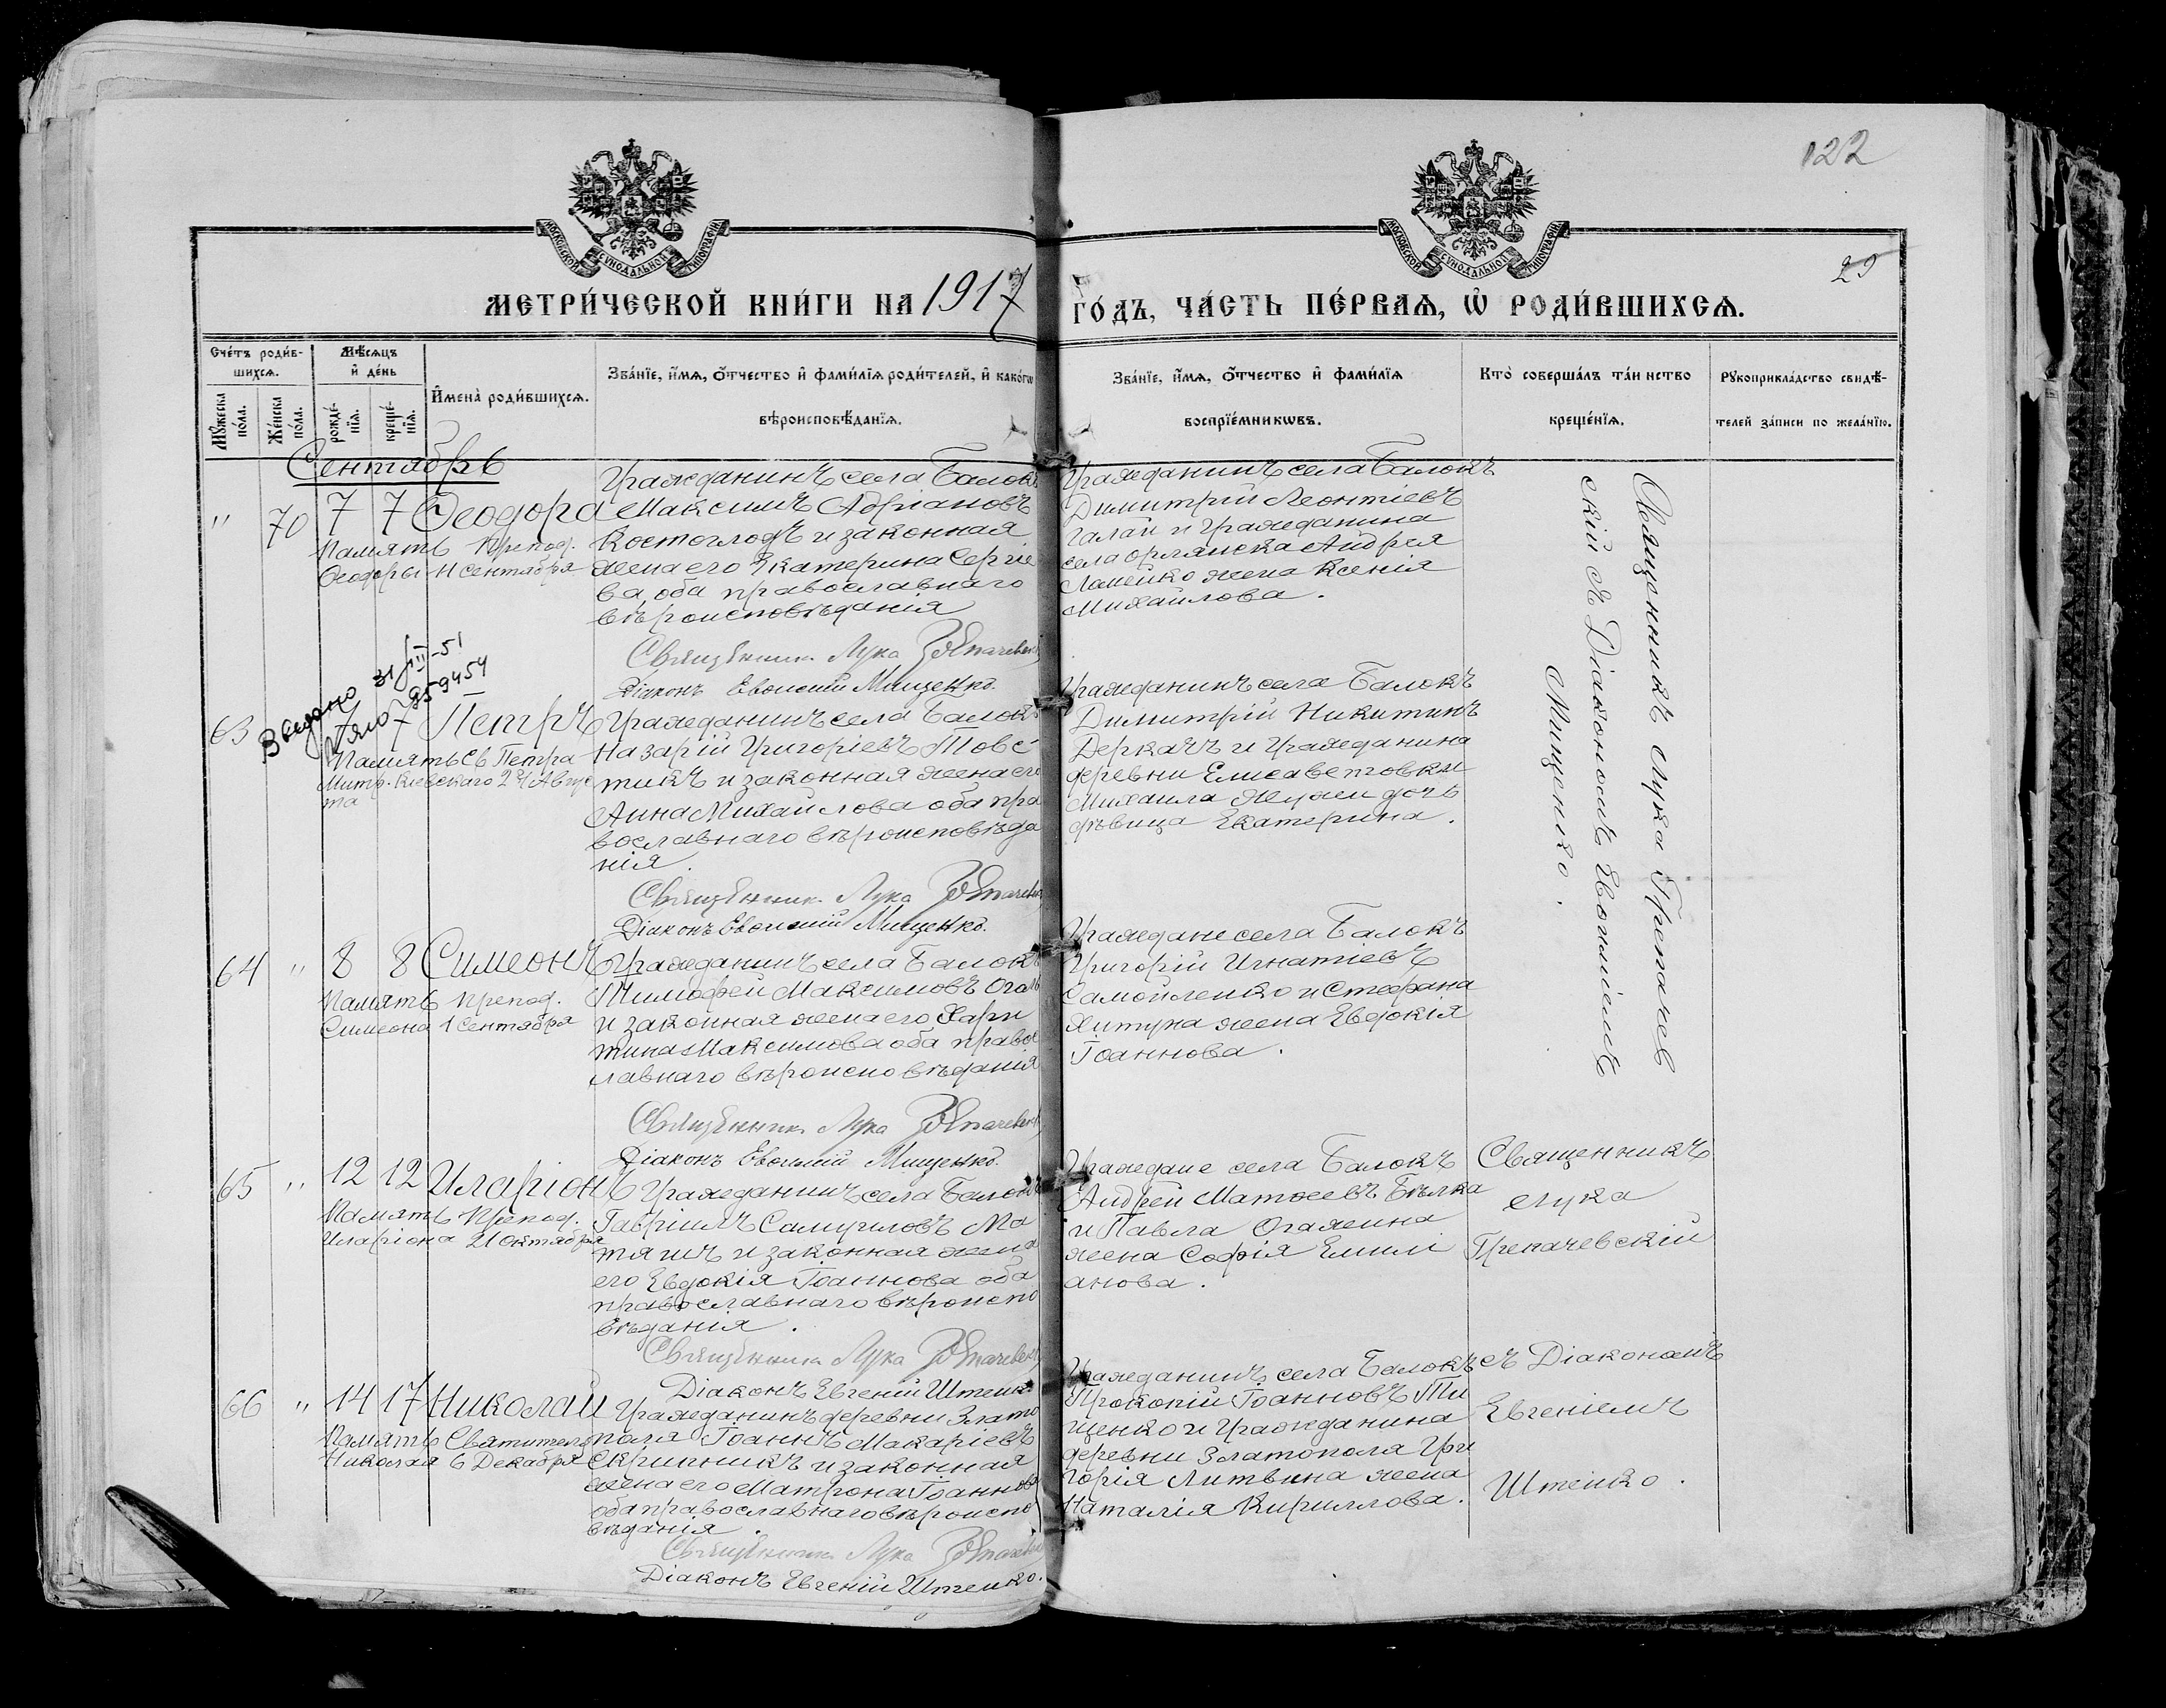 122
МОСКОВСКОЙ СѴНОДАЛЬНОЙ ТИПОГРАФІИ
МОСКОВСКОЙ СѴНОДАЛЬНОЙ ТИПОГРАФІИ
29
МЕТРИ́ЧЕСКОЙ КНИ́ГИ НА 1917 ГО́ДЪ, ЧА́СТЬ ПЕ́РВАѦ, Ѡ҆ РОДИ́ВШИХСѦ.
Сче́тъ роди́в-
шихсѧ.
Мѣ́сѧцъ
и҆ де́нь
Мꙋ́жеска
по́ла.
Же́нска
по́ла.
рожде́-
нїѧ.
креще́-
нїѧ.
И҆мена̀ роди́вшихсѧ.
Зва́нїе, и҆́мѧ, ѻ҆́тчество и҆ фами́лїѧ роди́телей, и҆ како́гѡ
вѣроисповѣ́данїѧ.
Зва́нїе, и҆́мѧ, ѻ҆́тчество и҆ фами́лїѧ
воспрїе́мникѡвъ.
Кто̀ соверша́лъ та́инство
креще́нїѧ.
Рꙋкоприкла́дство свидѣ́-
телей за́писи по жела́нїю.
Сентябрь
" 70 7 7 Ѳеодора
Память препод.
Ѳеодоры 11 Сентября
Гражданинъ села Балокъ
Максимъ Адріановъ
Костоглодъ и законная
жена его Екатерина Сергіе
ва, оба православнаго
вѣроисповѣданія
Священник Лука
Діаконъ Евѳимій Мищенко.
Гражданинъ села Балокъ
Димитрій Леонтіевъ
Галай и гражданина
села Орлянска Андрея
Ламейко жена Ксенія
Михайлова.
Священникъ Лука Грепачев
скій съ Діакономъ Евѳиміемъ
Мищенко.
31/III-51
959454
63 7 Петръ
Память Св Петра
Митр. Кіевскаго 24 Авгус
та
Гражданинъ села Балокъ
Назарій Григоріевъ Товс
тикъ и законная жена его
Анна Михайлова оба пра
вославнаго вѣроисповѣда
нія.
Священник Лука
Діаконъ Евѳимій Мищенко.
Гражданинъ села Балокъ
Димитрій Никитинъ
Деркачъ и гражданина
деревни Елисаветовки
Михаила дочь
дѣвица Екатерина.
64 " 8 8 Симеонъ
Память препод.
Симеона 1 Сентября
Гражданинъ села Балокъ
Тимофей Максимовъ
и законная жена его Хари
тина Максимова оба правос
лавнаго вѣроисповѣданія
Священник Лука
Діаконъ Евѳимій Мищенко.
Граждане села Балокъ
Григорій Игнатіевъ
Самойленко и Стефана
жена Евдокія
Іоаннова.
65 " 12 12 Иларіонъ
Память препод.
Иларіона 21 октября
Гражданинъ села Балокъ
Гавріилъ Самуиловъ Ма
тяшъ и законная жена
его Евдокія Іоаннова оба
православнаго вѣроиспо
вѣданія.
Священник Лука
Діаконъ Евгеній Штейко
Граждане села Балокъ
Андрей Матѳеевъ Бѣлка
и Павла
жена Софія Емилі
анова.
Священникъ
Лука
Грепачевскій
66 " 14 17 Николай
Память Святителя
Николая 6 Декабря
Гражданинъ деревни Злато
поля Іоаннъ Макаріевъ
Скрипникъ и законная
жена его Матрона Іоаннова
оба православнаго вѣроиспо
вѣданія.
Священник Лука
Діаконъ Евгеній Штейко.
Гражданинъ села Балокъ
Прокопій Іоанновъ Ти
щенко и гражданина
деревни Златополя Гри
горія Литвина жена
Наталія Кириллова.
съ Діакономъ
Евгеніемъ
Штейко.